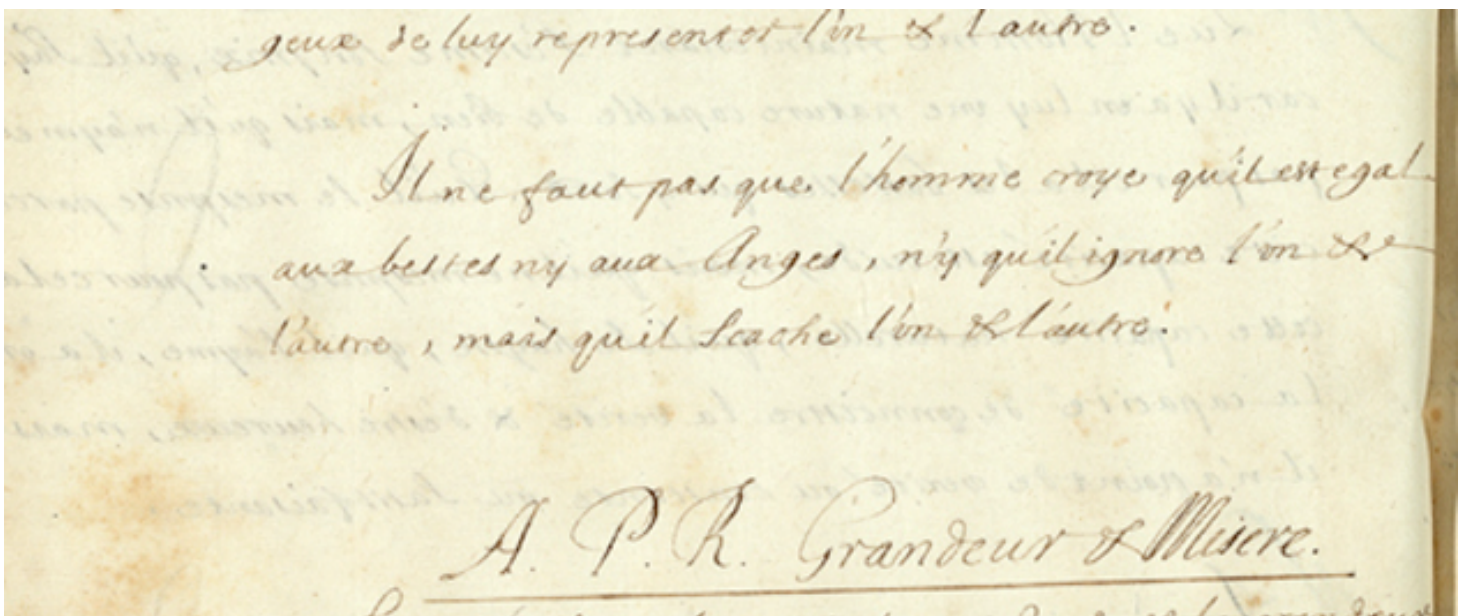 geux de luy representer l'un & l'autre.
Il ne faut pas que l'homme croye qu'il est egal
aux bestes ny aux Anges, n'y qu'il ignore l'un &
l'autre, mais qu'il scache l'un & l'autre.
A. P. R. Grandeur & Misere.